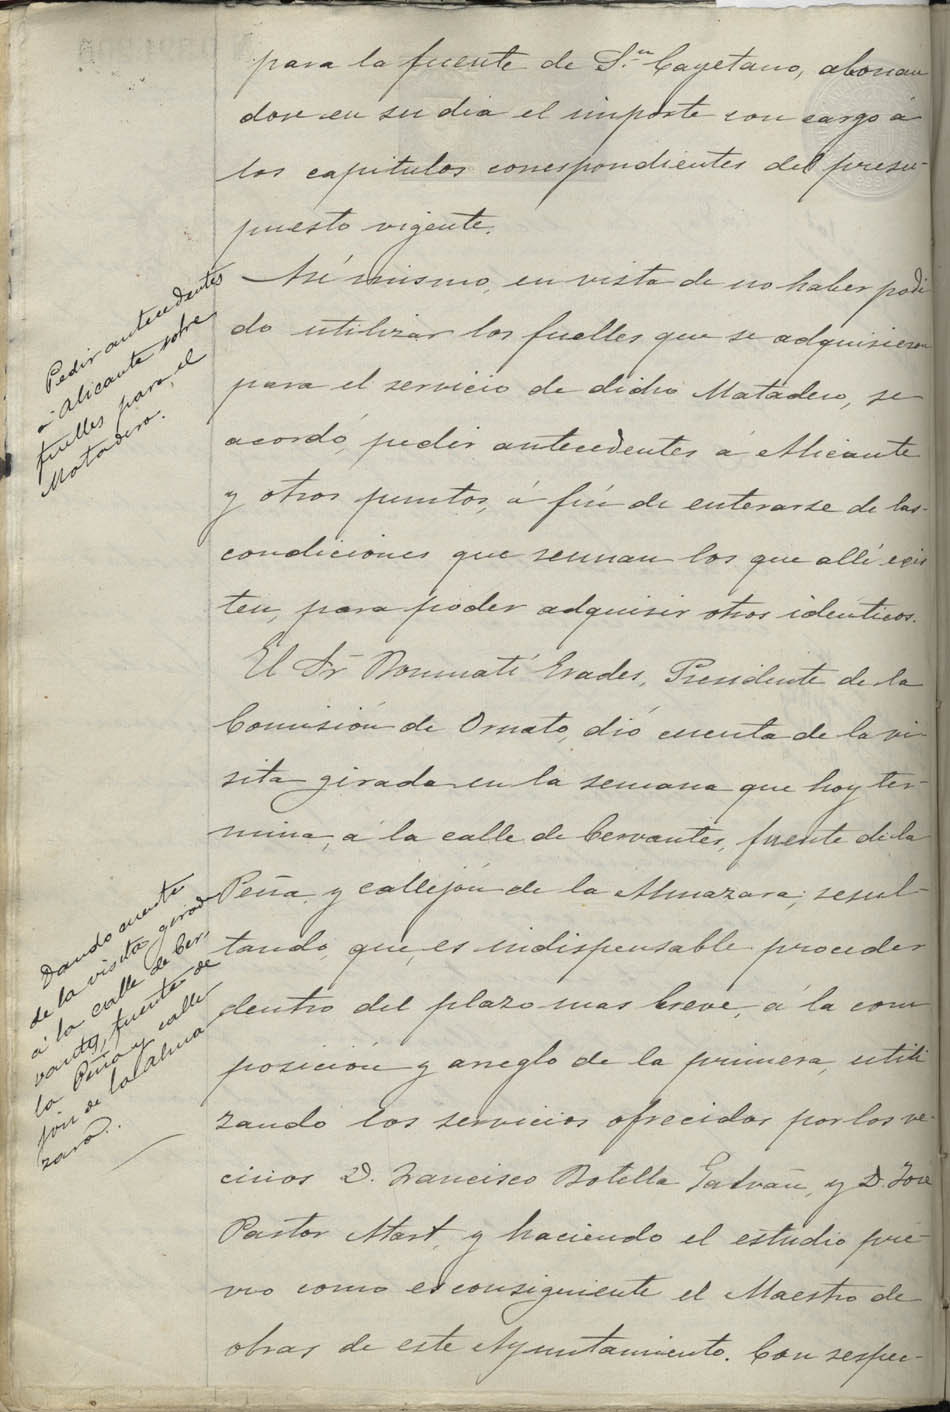 para la fuente de S.n Cayetano, abonan
dose en su dia el importe con cargo á
los capitulos correspondientes del presu-
puesto vigente.
Pedir antecedentes
á Alicante sobre
fuelles para el
Matadero.
Asi mismo, en vista de no haber podi
do utilizar los fuelles que se adquirieron
para el servicio de dicho Matadero, se
acordó, pedir antecedentes á Alicante
y otros puntos, á fin de enterarse de las
condiciones que reunan los que alli exis
ten, para poder adquirir otros identicos.
El Sr Bonmatí Erades, Presidente de la
Comisión de Ornato, dió cuenta de la vi
sita girada en la semana que hoy ter-
mina, á la calle de Cervantes, fuente de la
Dando cuenta
de la visita girada
á la calle de Cer-
vantes, fuente de
la Peña y calle
jón de la Alma
zara.
Peña y callejón de la Almazara; resul-
tando, que, es indispensable proceder
dentro del plazo mas breve, á la com
posición y arreglo de la primera, utili
zando los servicios ofrecidos por los ve-
cinos D. Francisco Botella Galvañ, y D. José
Pastor Mast, y haciendo el estudio pré-
vio como es consiguiente el Maestro de
obras de este Ayuntamiento. Con respec-